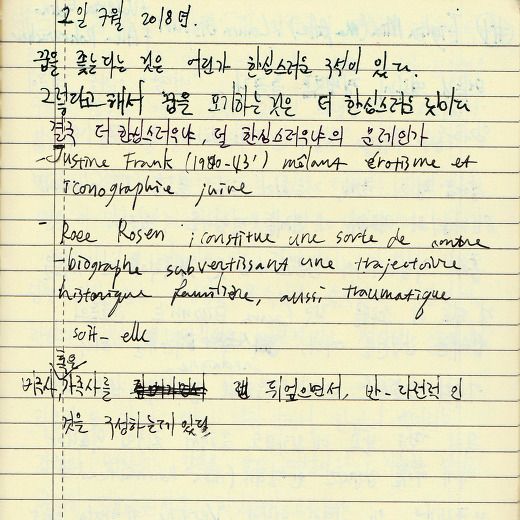 2일 7월 2018년.
꿈을 좇는다는 것은 어딘가 한심스러운 구석이 있다.
그렇다고 해서 꿈을 포기하는 것은 더 한심스러운 일이다
결국 더 한심스러우냐, 덜 한심스러우냐의 문제인가
- Justine Frank (1900-43') mêlant érotisme et
iconographie juive
- Roee Rosen constitue une sorte de contre
-biographe subvertissant une trajectoire
historique familière, aussi traumatique
soit-elle
혹은
가족사를 뒤엎으면서, 반-
것을 구성하는데 있다